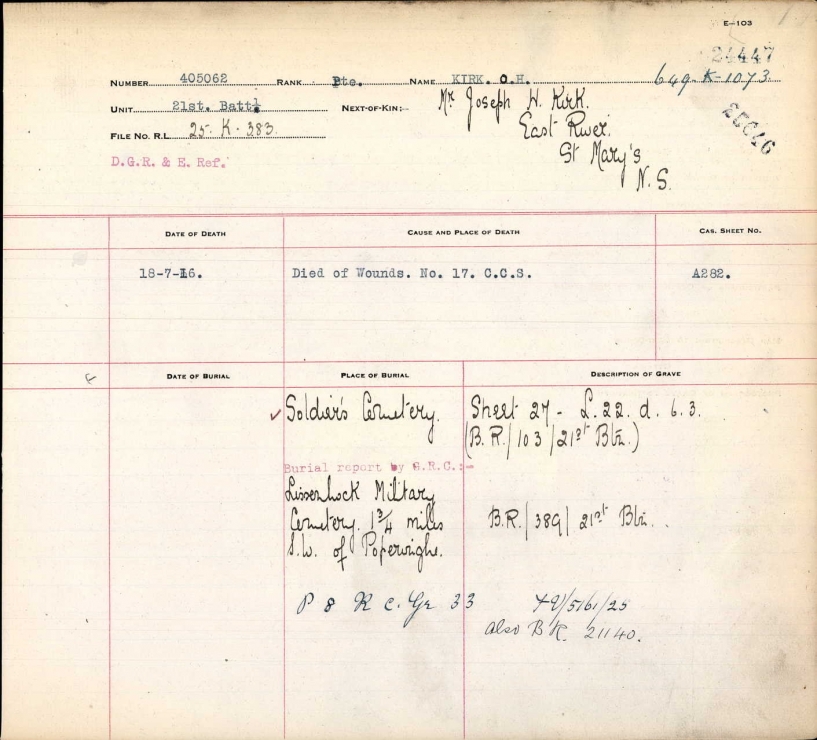 E-103
24447
649-K-1073.
NUMBER 405062 RANK Pte. NAME KIRK. O.H.
UNIT 21st. Battl NEXT-OF-KIN:- Mr Joseph H. Kirk.
East River.
St Mary's
N.S.
FILE No. R.L. 25. K. 383.
D.G.R. & E. Ref.
DATE OF DEATH CAUSE AND PLACE OF DEATH CAS. SHEET NO.
18-7-16. Died of Wounds. No. 17. C.C.S. A282.
DATE OF BURIAL PLACE OF BURIAL DESCRIPTION OF GRAVE
Soldier's Cemetery. Sheet 27 - L. 22. d. 6. 3.
(B.R./103/21st Btn.)
Burial report by G.R.C.:-
Lissenhock Military
Cemetery. 1 3/4 miles B.R./389/ 21st Btn.
S.W. of Poperinghe.
P 8 R C. Gr 33
also B R. 21140.